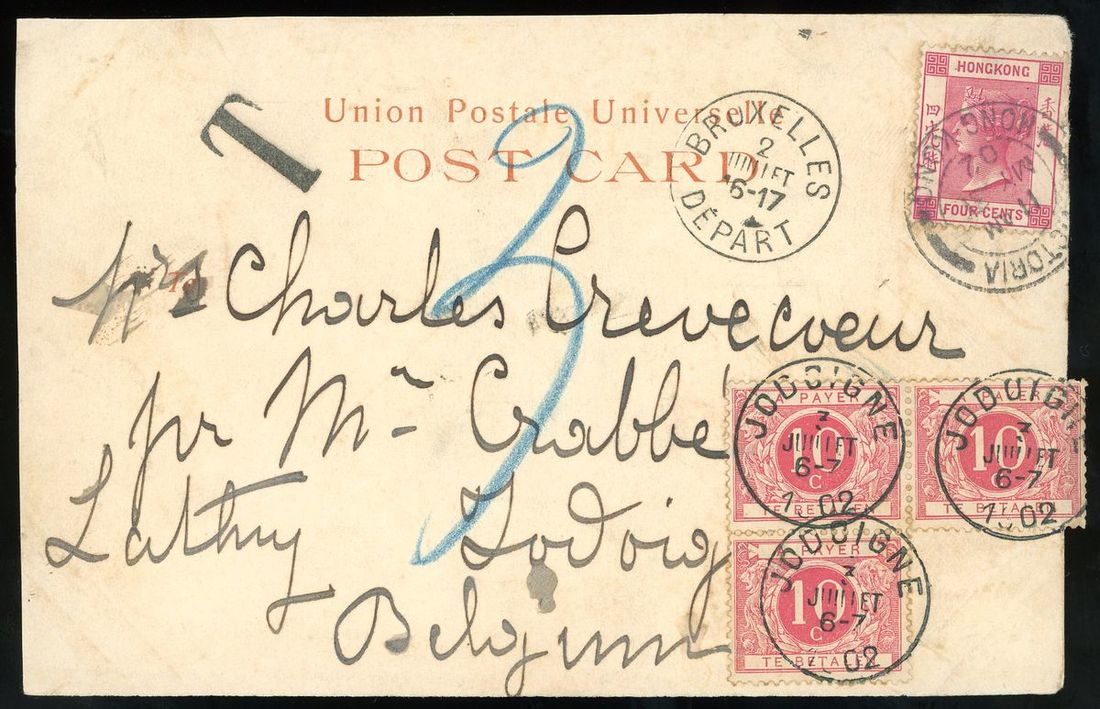 T
Union Postale Universelle
POST CARD
BRUXELLES
2
JUILLET
16-17
DÉPART
HONGKONG
FOUR CENTS
VICTORIA
HONG-KONG
02
3
To
Mrs Charles Crevecoeur
pr Mr Crabbé
Lathuy Jodoig
Belgium
A PAYER
10
C
TE BETALEN
JODOIGNE
3
JUILLET
6-7
1902
10
TE BETALEN
JODOIGNE
3
JUILLET
6-7
1902
A PAYER
10
C
TE BETALEN
JODOIGNE
3
JUILLET
6-7
02